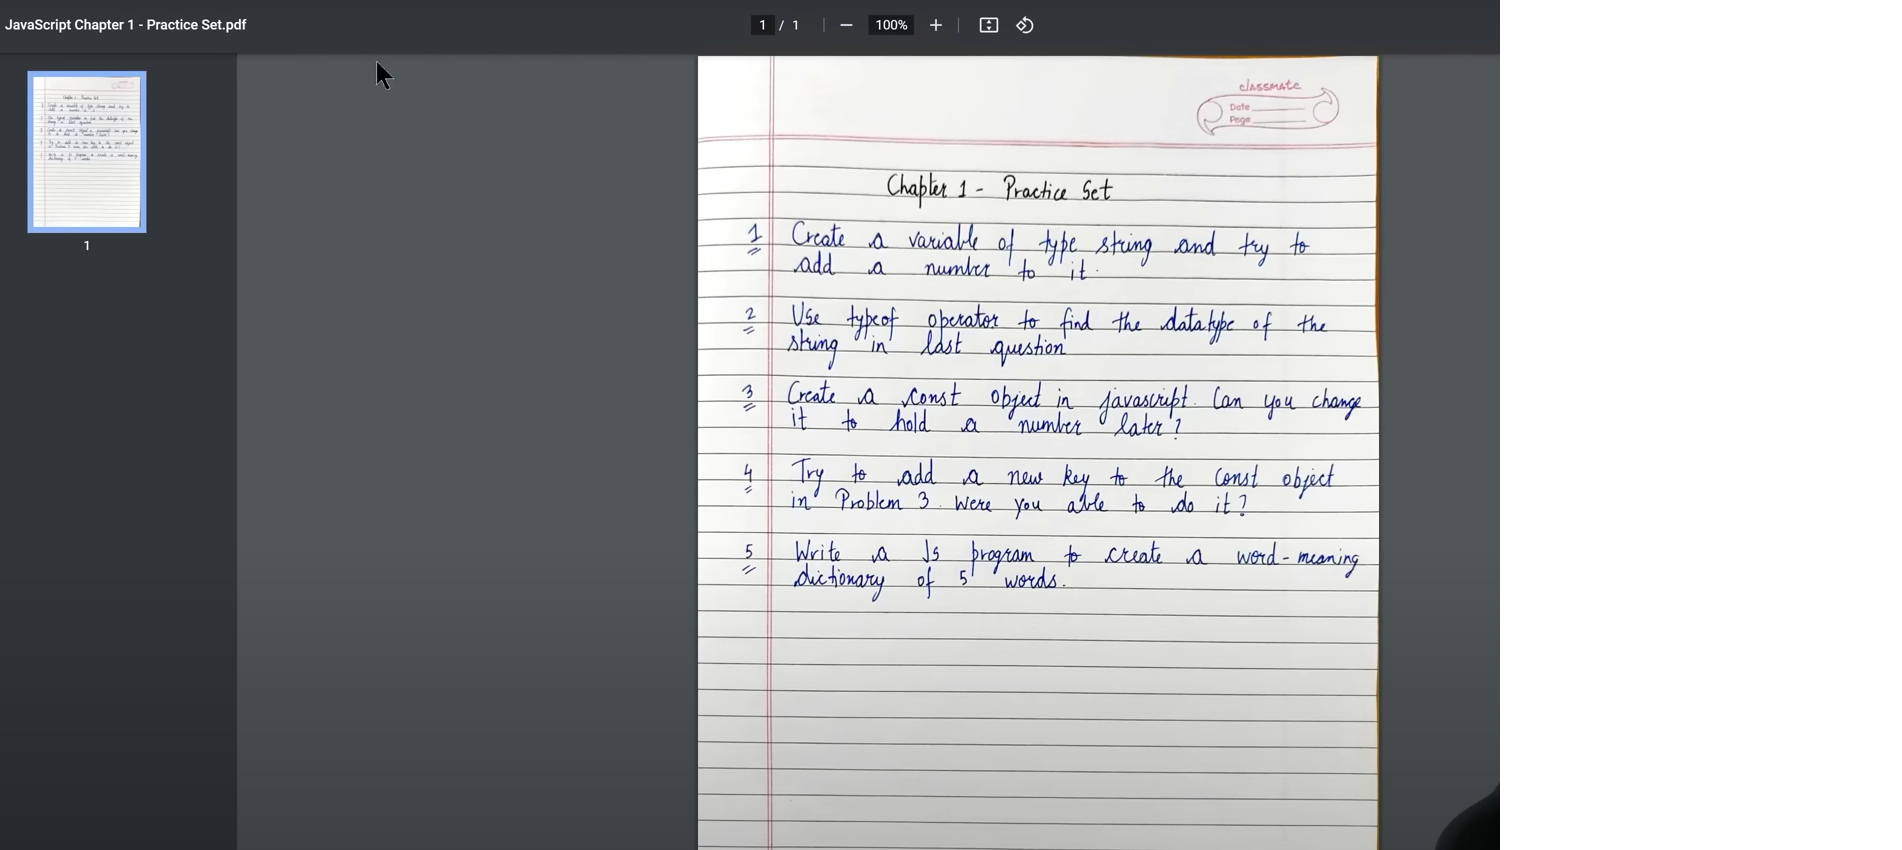 JavaScript Chapter 1 - Practice Set.pdf
1 / 1
100%
1
classmate
Date
Page
Chapter 1 - Practice Set
1 Create a variable of type string and try to
add a number to it.
2 Use typeof operator to find the datatype of the
string in last question
3 Create a const object in javascript. Can you change
it to hold a number later?
4 Try to add a new key to the const object
in Problem 3. Were you able to do it?
5 Write a Js program to create a word-meaning
dictionary of 5 words.